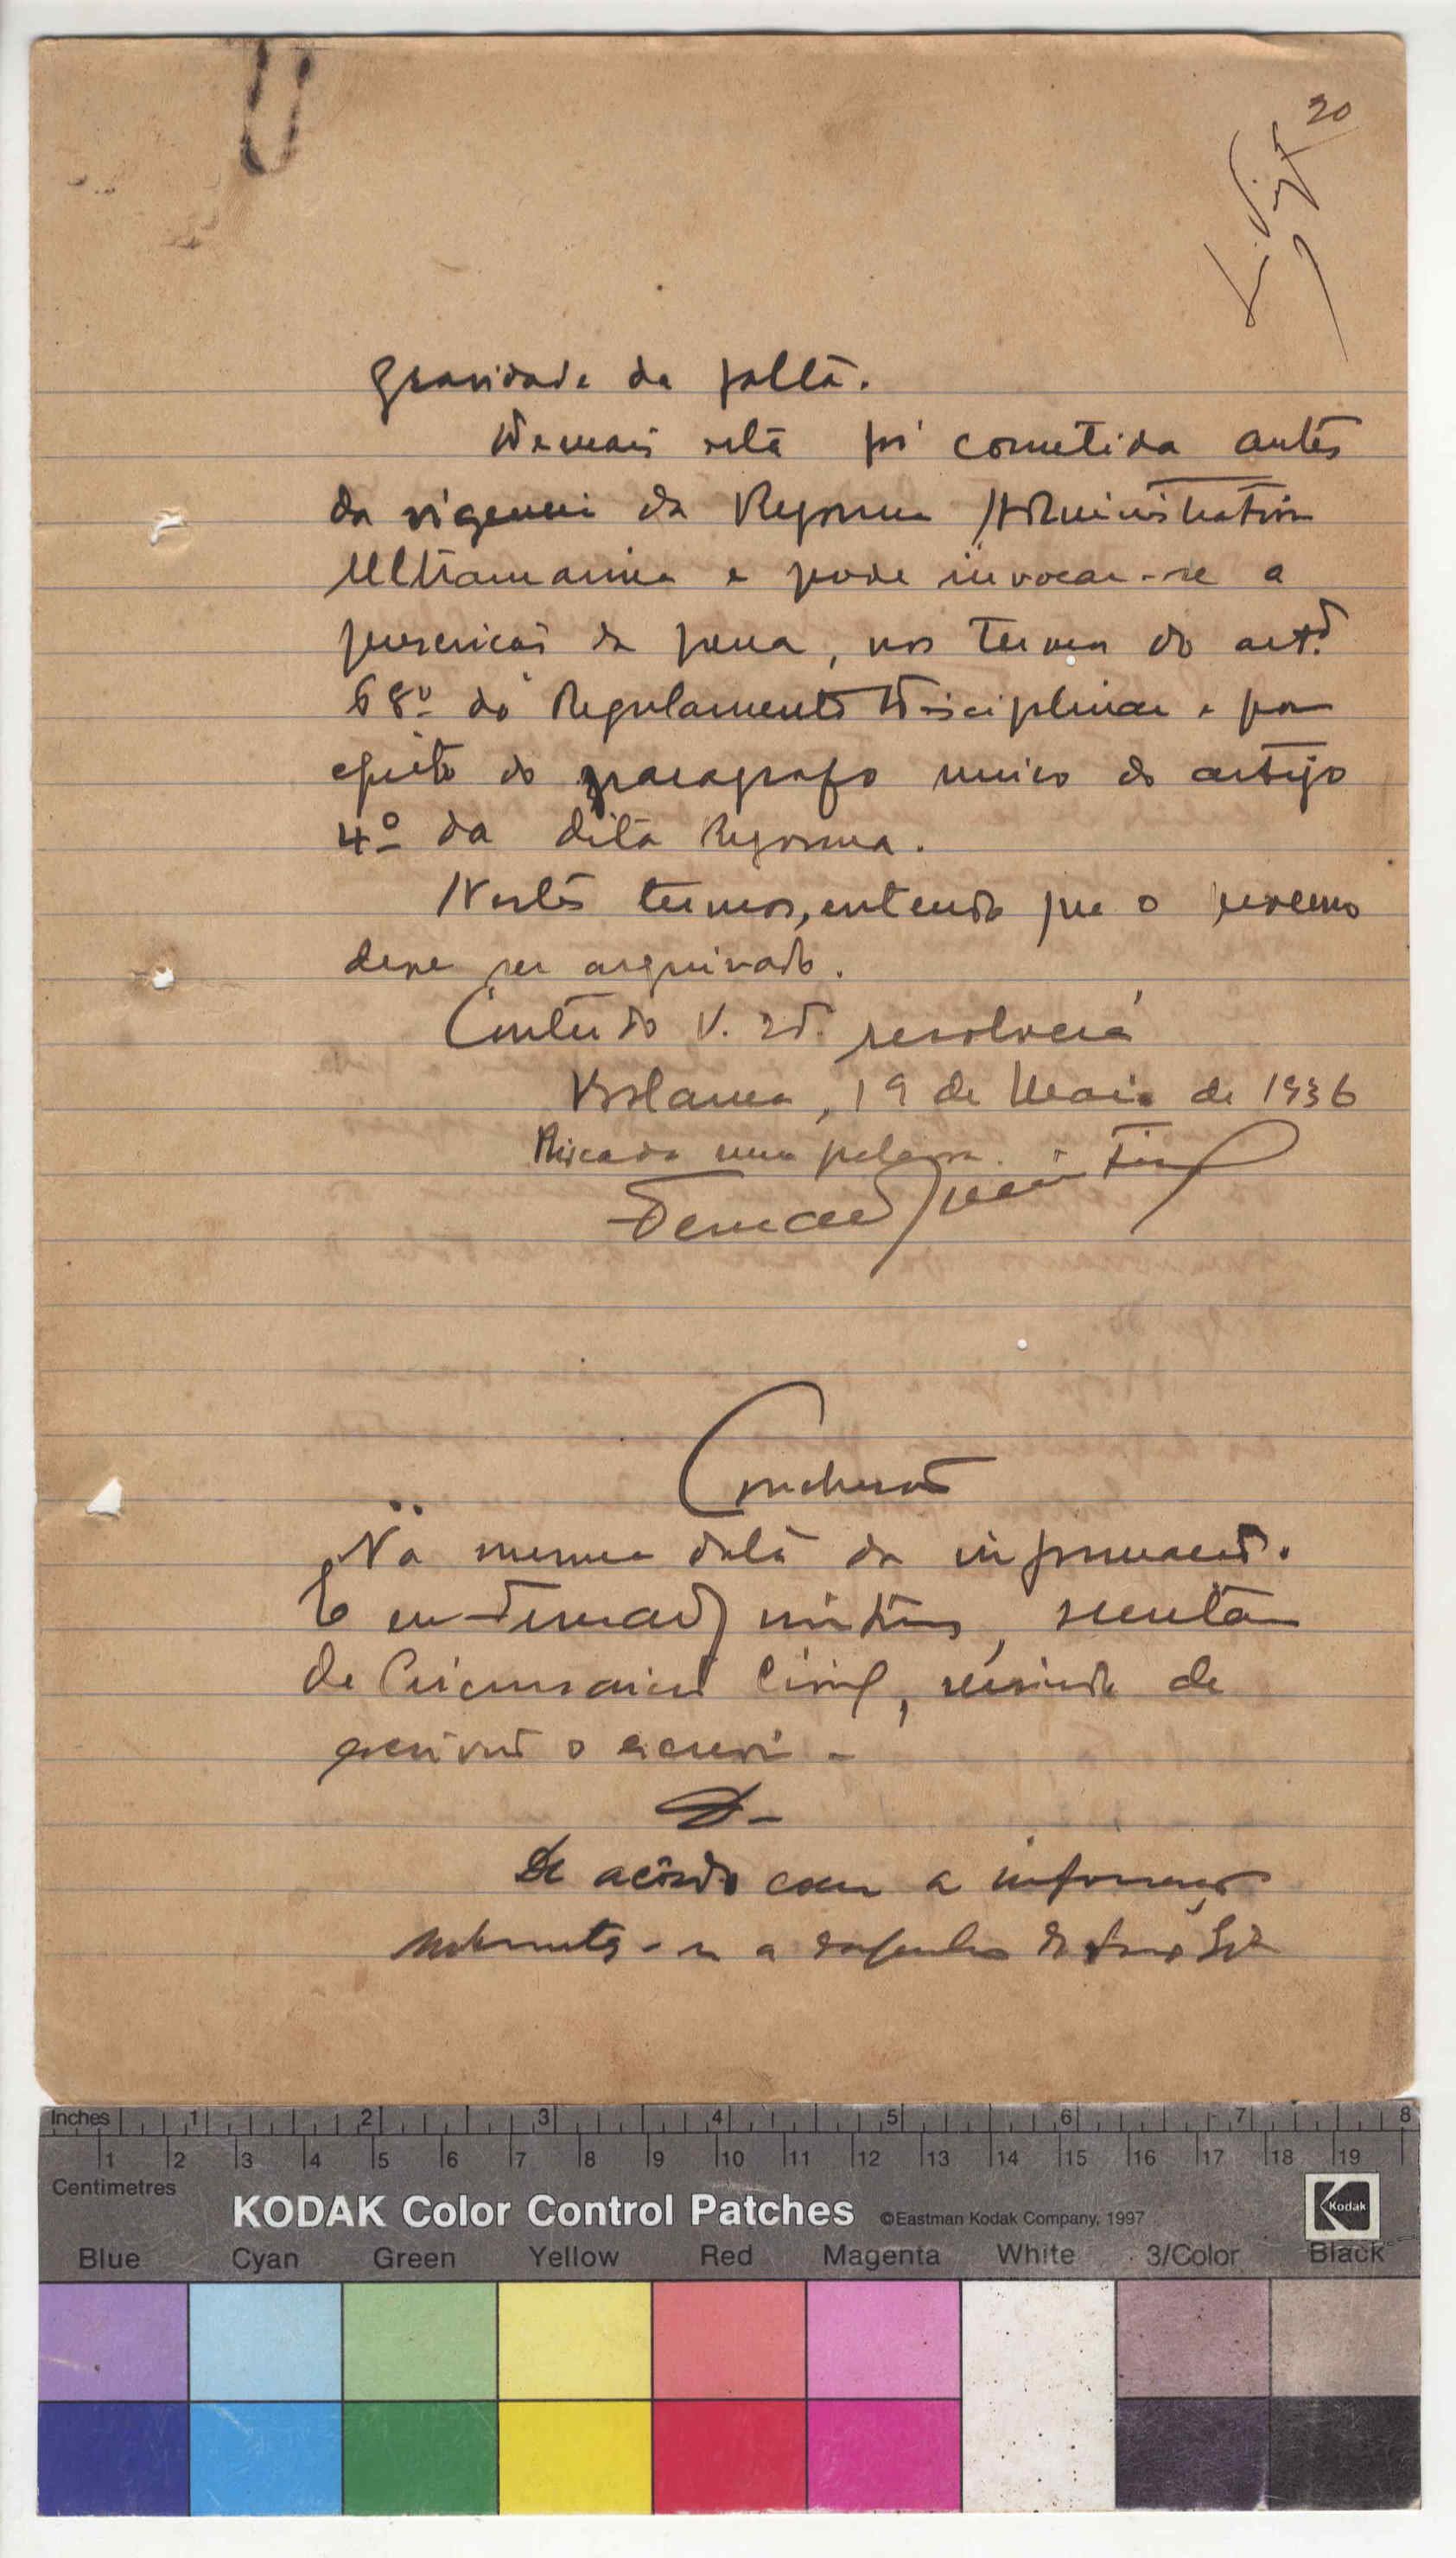 20
gravidade da falta.
Demais esta foi cometida antes
da vigencia da Reforma Administrativa
Ultramarina e pode invocar-se a
prescrição da pena, nos termos do artº
68º do Regulamento Disciplinar e por
efeito do paragrafo unico do artigo
4º da dita Reforma.
Nestes termos, entendo que o processo
deve ser arquivado.
Contudo V. Exª. resolverá
Bolama, 19 de Maio de 1936
Riscada uma palavra.
Conclusão
Na mesma data da informação.
E eu
de Circunscrição Civil, servindo de
escrivão o escrevi -
De acôrdo com a informação
submeta-se a
Inches 1 2 3 4 5 6 7 8
1 2 3 4 5 6 7 8 9 10 11 12 13 14 15 16 17 18 19
Centimetres
KODAK Color Control Patches ©Eastman Kodak Company, 1997 Kodak
Blue Cyan Green Yellow Red Magenta White 3/Color Black